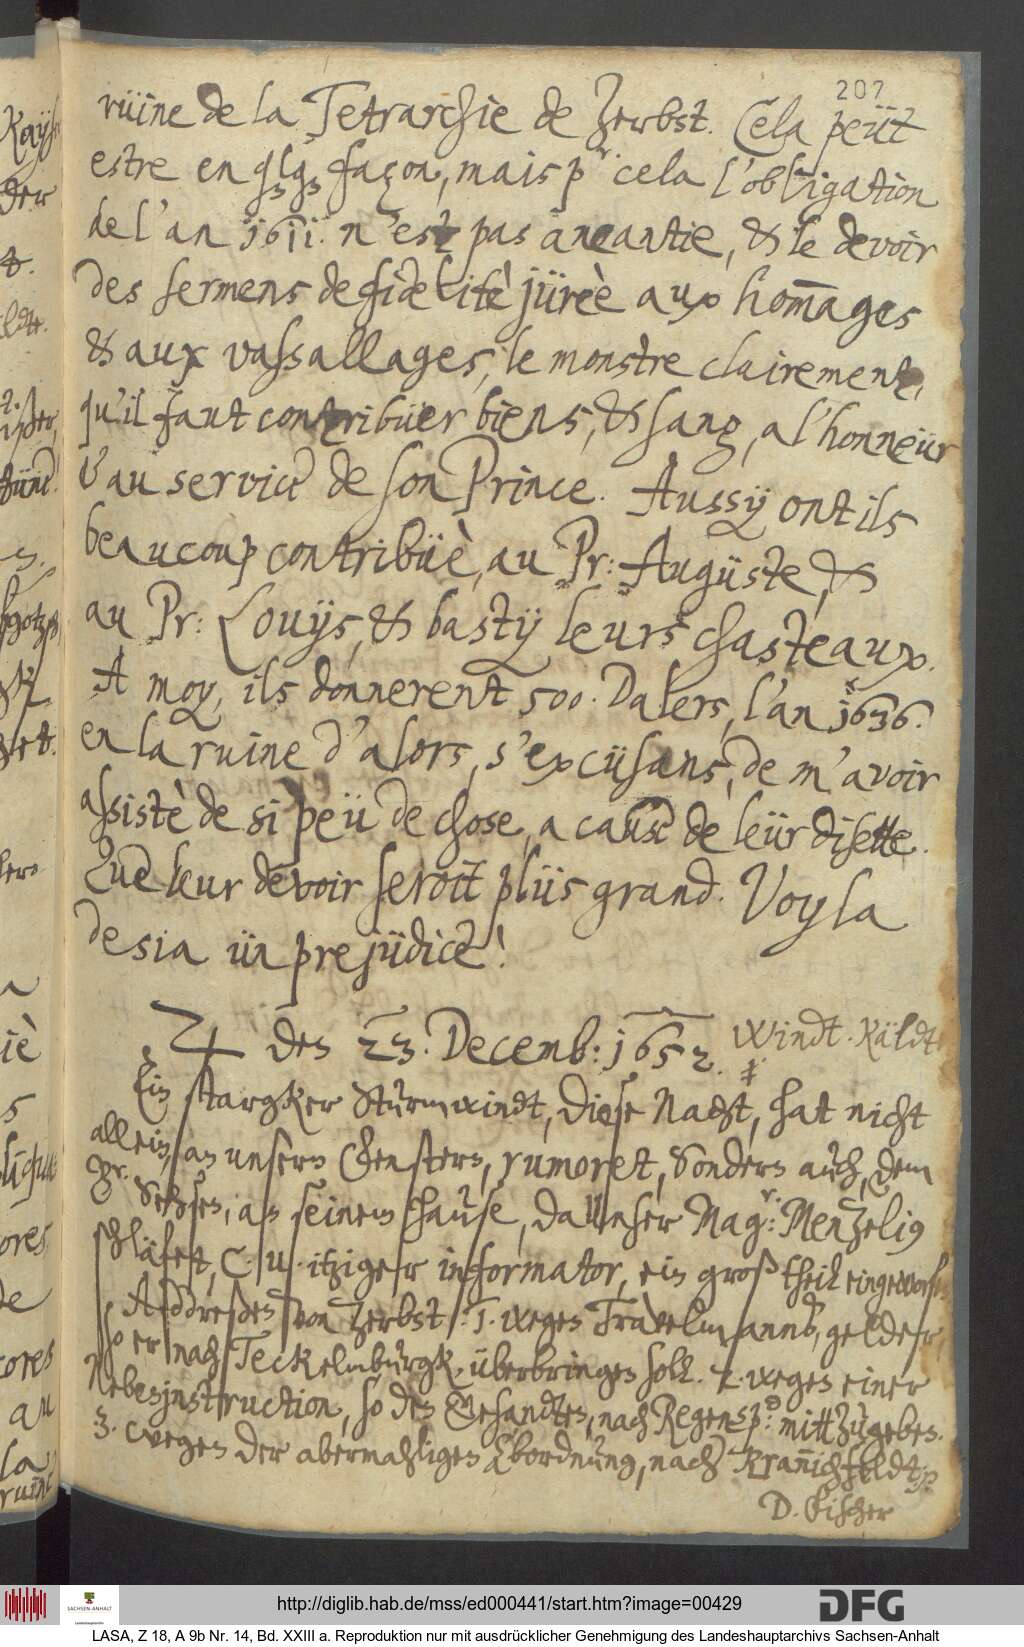 207
rüine de la Tetrarchie de Zerbst. Cela peüt
estre en qlq façon, mais pr cela l'obligation
de l'an 1611. n'est pas aneantie, & le devoir
des sermens de fidelitè jürèe aux hom̅ages
& aux vassallages, le monstre clairement,
qu'il faut contribüer biens, & sang, a l'honneür
& au service de son Prince. Aussÿ ont ils
beaucoup contribüè, au Pr: Augüste, &
au Pr: Louÿs, & bastÿ leurs chasteaux.
A moy, ils donnerent 500. Dalers, l'an 1636.
en la ruine d'alors, s'excüsans, de m'avoir
assistè de si peü de chose, a cause de leür disette.
Que leur devoir seroit plüs grand. Voyla
desia ün prejüdice!
♃ den 23. Decemb: 1652. Windt. Käldte
Ein stargker Sturmwindt, diese Nacht, hat nicht
allein, an unsern Fenstern, rumoret, Sondern auch, dem
Pr. Sechsen, an seinem hause, da unser Mag.r: Menzelius
schläfet, C. u. itziger informator, ein groß theil eingeworfen
Addreßen von Zerbst: 1. wegen Travelmanns, gelder,
so er nach Teckelmburgk, überbringen soll. 2. wegen einer
Nebeninstruction, so den Gesandten, nach Regensp: mittzugeben.
3. wegen der abermahligen Abordnung, nach Kran̅ichfeldt p
D. Fischer
http://diglib.hab.de/mss/ed000441/start.htm?image=00429
SACHSEN-ANHALT
DFG
LASA, Z 18, A 9b Nr. 14, Bd. XXIII a. Reproduktion nur mit ausdrücklicher Genehmigung des Landeshauptarchivs Sachsen-Anhalt